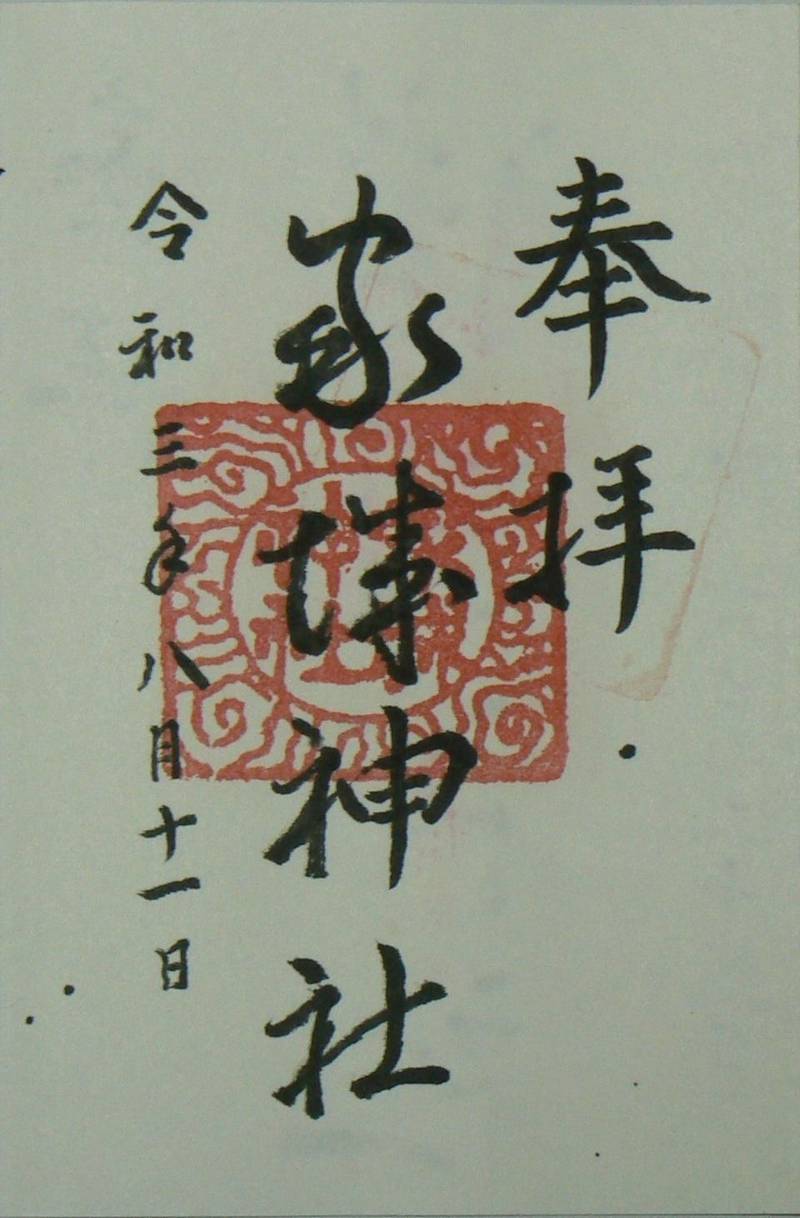 奉拝
家城神社
令和三年八月十一日